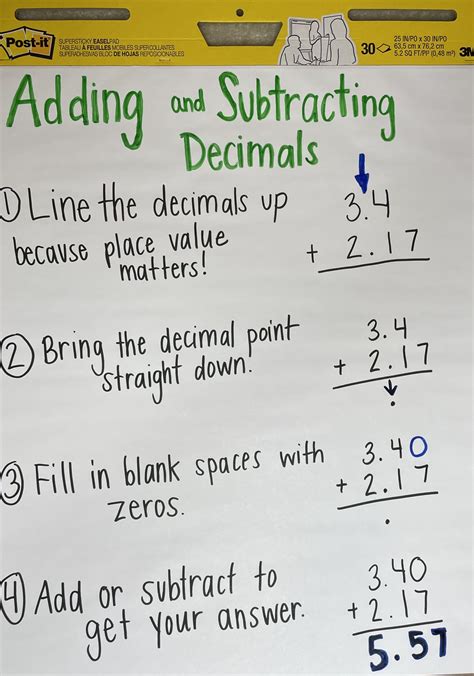 Post-it
SUPERSTICKY EASEL PAD
TABLEAU À FEUILLES MOBILES SUPERCOLLANTES
SUPERADHESIVAS BLOC DE HOJAS REPOSICIONABLES
30
25 IN/PO x 30 IN/PO
63,5 cm x 76,2 cm
5.2 SQ FT/PP (0,48 m²)
3M
Adding and Subtracting
Decimals
① Line the decimals up
because place value
matters!
3.4
+ 2.17
② Bring the decimal point
straight down.
3.4
+ 2.17
.
③ Fill in blank spaces with
zeros.
3.40
+ 2.17
.
④ Add or subtract to
get your answer.
3.40
+ 2.17
5.57